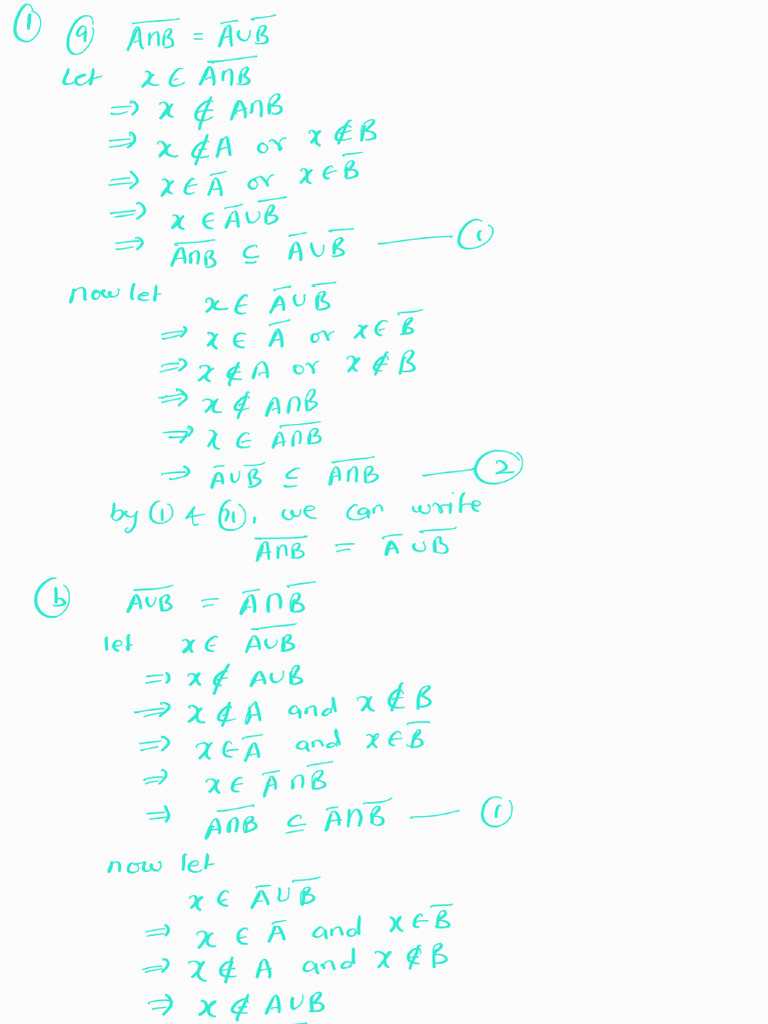 ① ⓐ $\overline{A \cap B} = \overline{A} \cup \overline{B}$
Let $x \in \overline{A \cap B}$
⇒ $x \notin A \cap B$
⇒ $x \notin A$ or $x \notin B$
⇒ $x \in \overline{A}$ or $x \in \overline{B}$
⇒ $x \in \overline{A} \cup \overline{B}$
⇒ $\overline{A \cap B} \subseteq \overline{A} \cup \overline{B}$ — ①
now let $x \in \overline{A} \cup \overline{B}$
⇒ $x \in \overline{A}$ or $x \in \overline{B}$
⇒ $x \notin A$ or $x \notin B$
⇒ $x \notin A \cap B$
⇒ $x \in \overline{A \cap B}$
⇒ $\overline{A} \cup \overline{B} \subseteq \overline{A \cap B}$ — ②
by ① & (ii), we can write
$\overline{A \cap B} = \overline{A} \cup \overline{B}$
ⓑ $\overline{A \cup B} = \overline{A} \cap \overline{B}$
let $x \in \overline{A \cup B}$
⇒ $x \notin A \cup B$
⇒ $x \notin A$ and $x \notin B$
⇒ $x \in \overline{A}$ and $x \in \overline{B}$
⇒ $x \in \overline{A} \cap \overline{B}$
⇒ $\overline{A \cap B} \subseteq \overline{A} \cap \overline{B}$ — ①
now let
$x \in \overline{A} \cup \overline{B}$
⇒ $x \in \overline{A}$ and $x \in \overline{B}$
⇒ $x \notin A$ and $x \notin B$
⇒ $x \notin A \cup B$